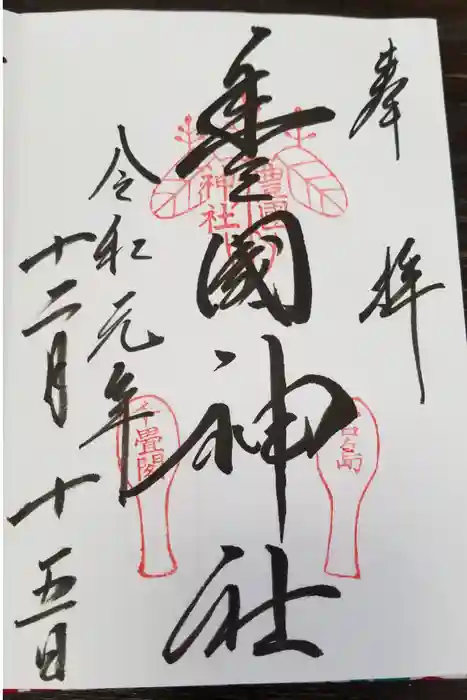 奉拝
豊國神社
豊國
神社
宮島
千畳閣
令和元年
十二月十五日